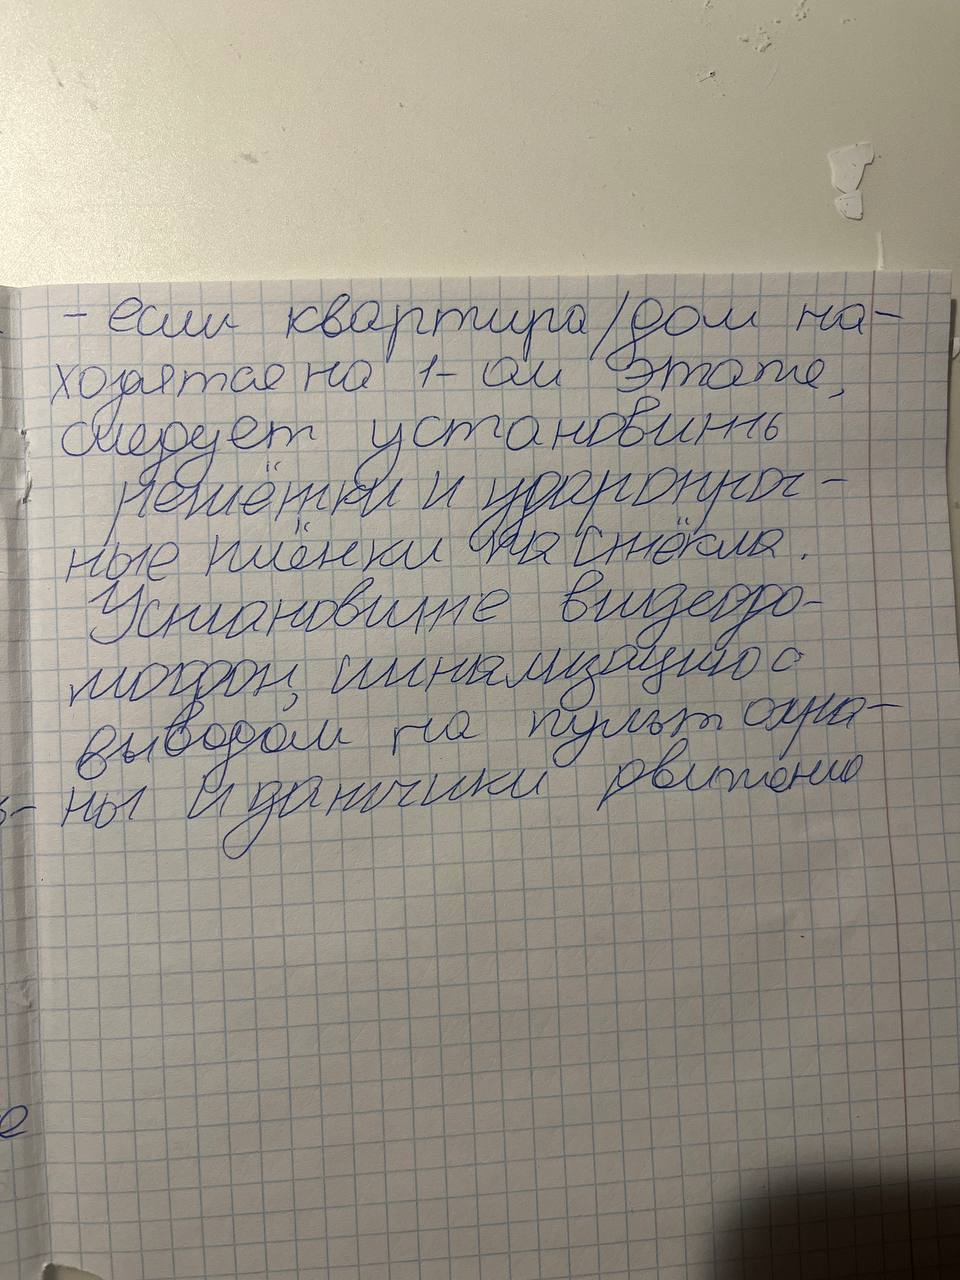 - если квартира/дом на-
ходятся на 1-ом этаже,
следует установить
решётки и ударопроч-
ные плёнки на стёкла.
Установите видеодо-
мофон, сигнализацию с
выводом на пульт охра-
ны и датчики движения
з-
е